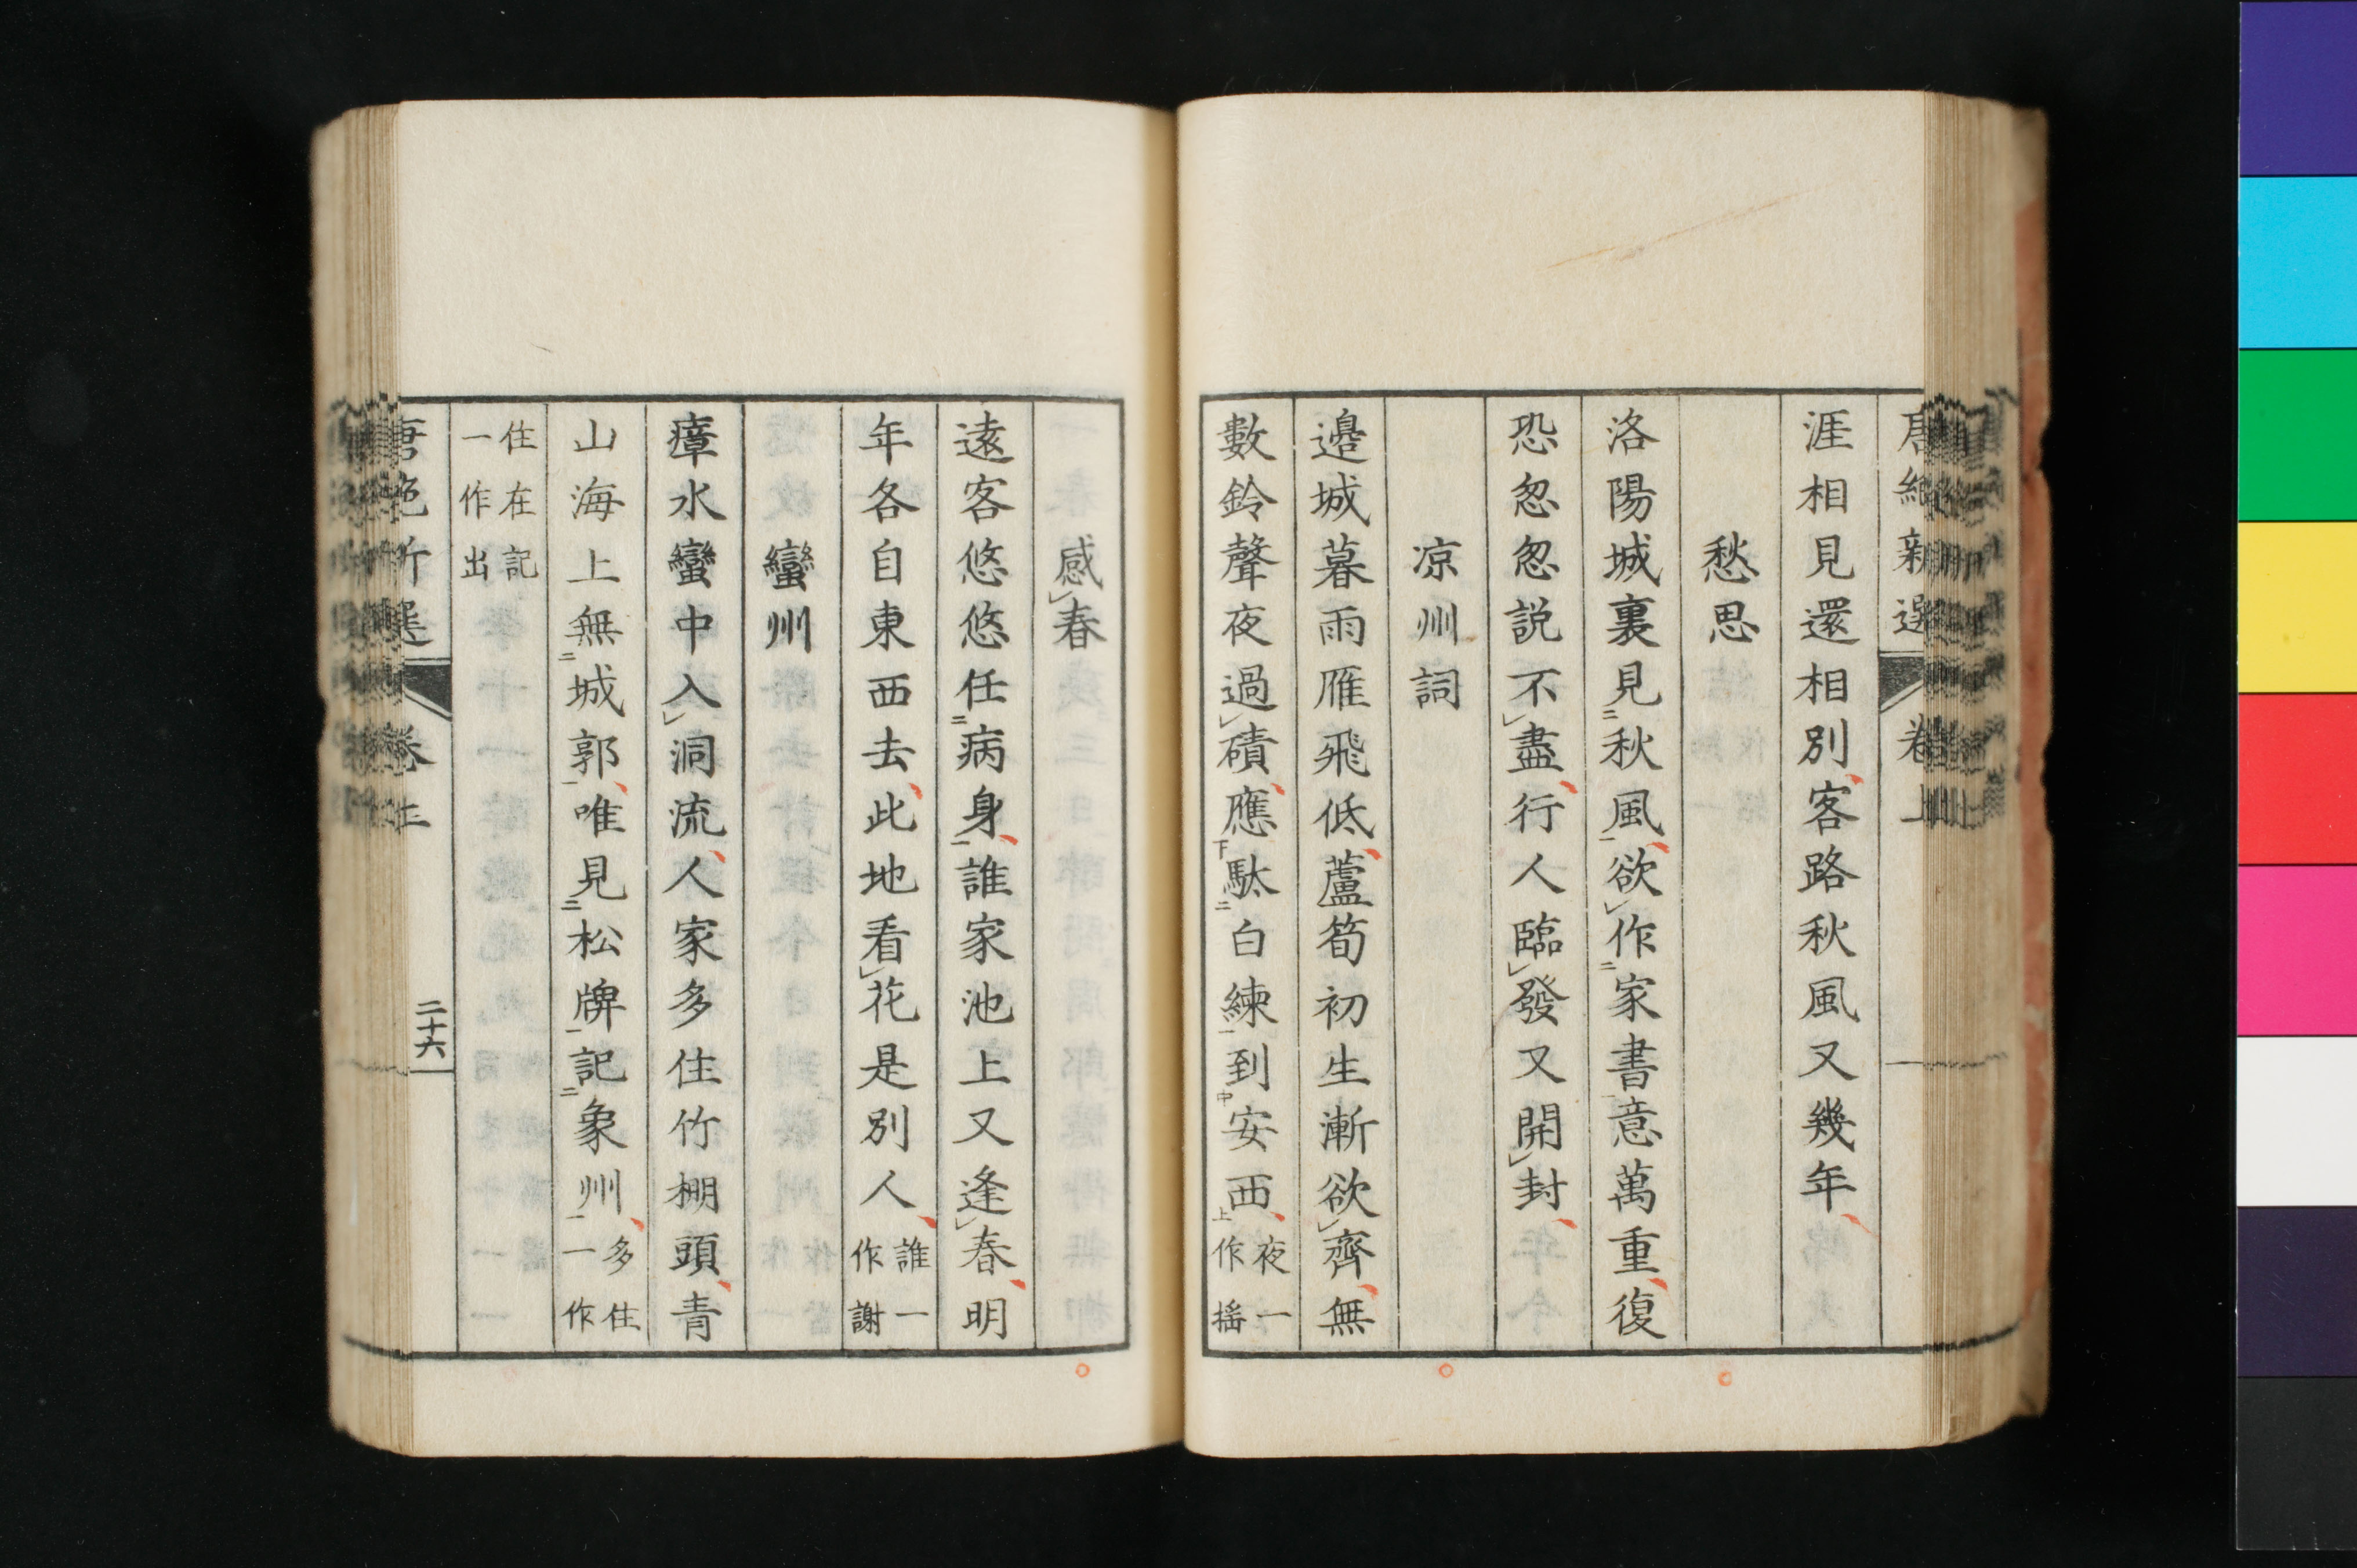 唐絶新選 卷上
涯相見還相別客路秋風又幾年
愁思
洛陽城裏見二秋風一欲レ作二家書一意萬重復
恐忽忽説不レ盡行人臨レ發又開レ封
凉州詞
邉城暮雨雁飛低蘆筍初生漸欲レ齊無
數鈴聲夜過レ磧應下馱二白練一到中安西上夜一作揺
感レ春
遠客悠悠任二病身一誰家池上又逢レ春明
年各自東西去此地看レ花是別人誰一作謝
蠻州
瘴水蠻中入レ洞流人家多住竹棚頭青
山海上無二城郭一唯見二松牌一記二象州一多住一作
住在記一作出
唐絶新選 卷上 二十六